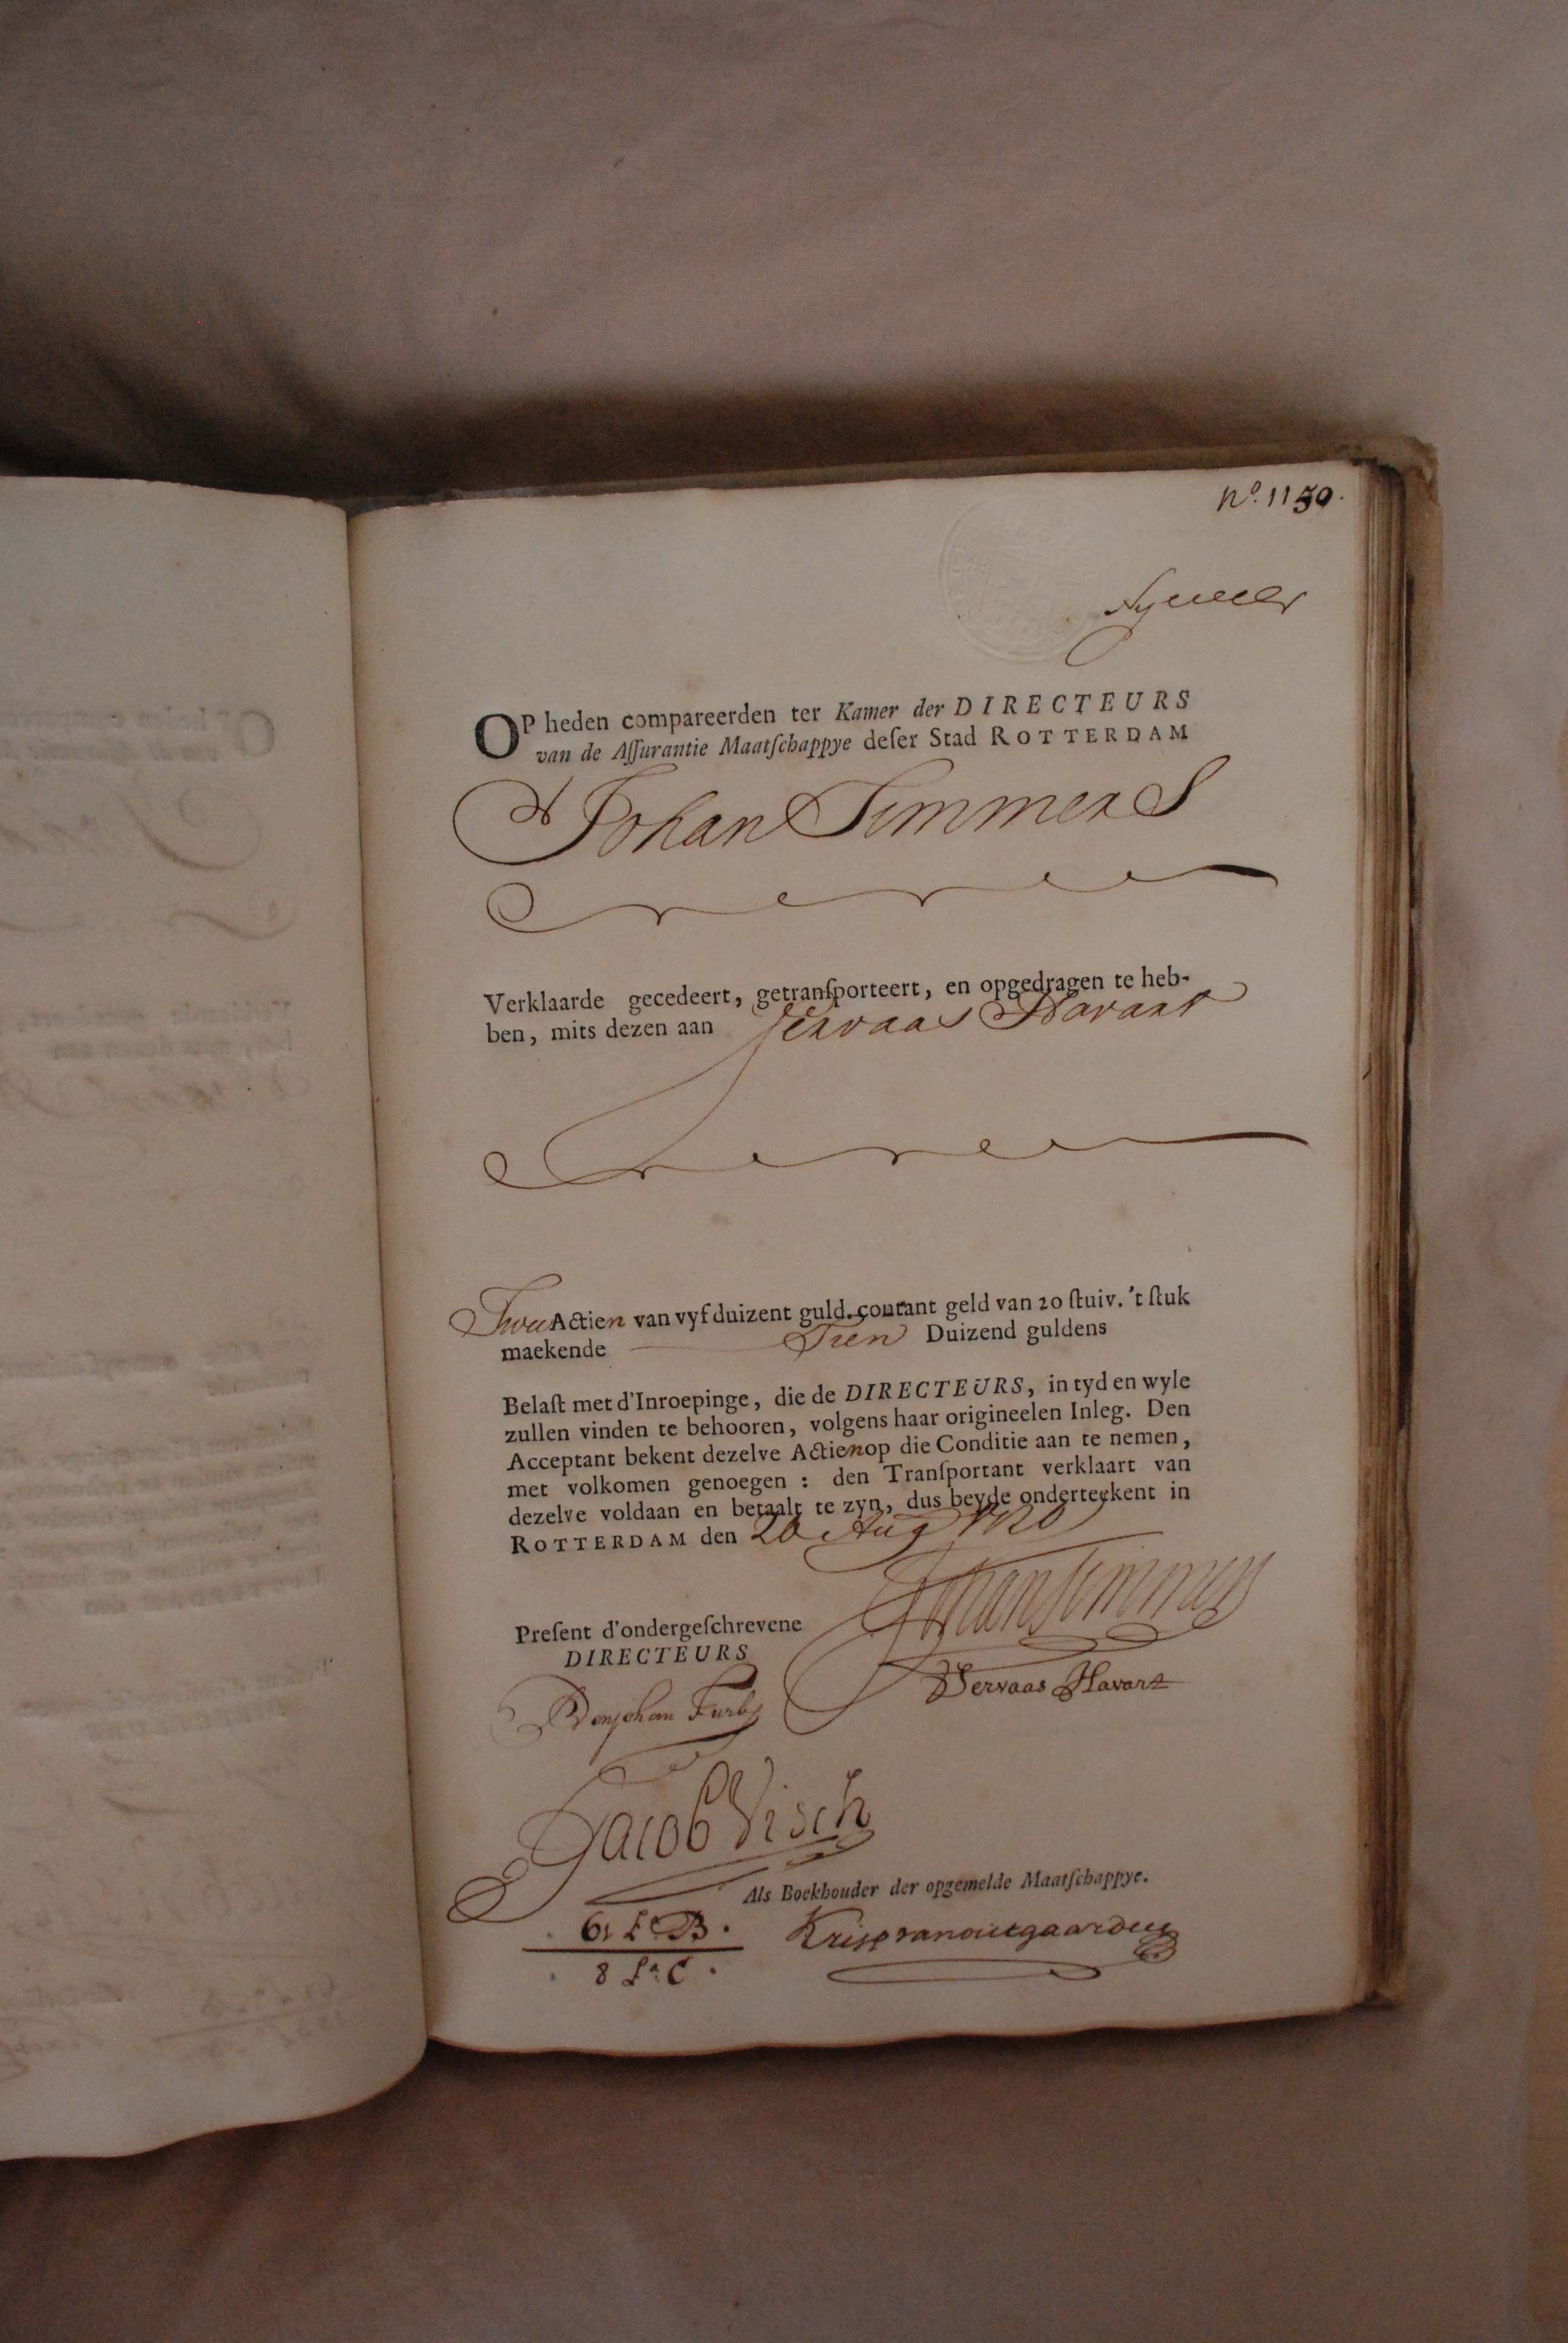 No. 1150.
OP heden compareerden ter Kamer der DIRECTEURS
van de Aſſurantie Maatſchappye deſer Stad ROTTERDAM
Johan Timmers
Verklaarde gecedeert, getranſporteert, en opgedragen te heb-
ben, mits dezen aan Servaas Havart
Twee Actien van vyf duizent guld. courant geld van 20 ſtuiv. 't ſtuk
maekende Tien Duizend guldens
Belaſt met d'Inroepinge, die de DIRECTEURS, in tyd en wyle
zullen vinden te behooren, volgens haar origineelen Inleg. Den
Acceptant bekent dezelve Actien op die Conditie aan te nemen,
met volkomen genoegen : den Tranſportant verklaart van
dezelve voldaan en betaalt te zyn, dus beyde onderteekent in
ROTTERDAM den 20 Aug 1720
Johan Timmers
Preſent d'ondergeſchrevene
DIRECTEURS
Servaas Havart
Benjohan Furly
Jacob Visch
Als Boekhouder der opgemelde Maatſchappye.
61 La B.
8 La C.